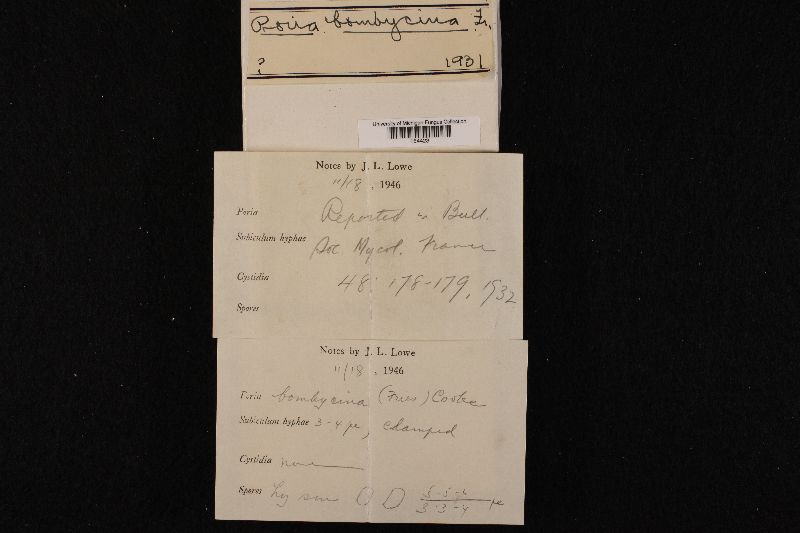 Poria bombycina Fr.
? 1931
University of Michigan Fungus Collection
Notes by J. L. Lowe
11/18, 1946
Poria Reported in Bull.
Subiculum hyphae Soc. Mycol. France
Cystidia 48: 178-179, 1932
Spores
Notes by J. L. Lowe
11/18, 1946
Poria bombycina (Fries) Cooke
Subiculum hyphae 3-4 µ, clamped
Cystidia none
Spores hy sm